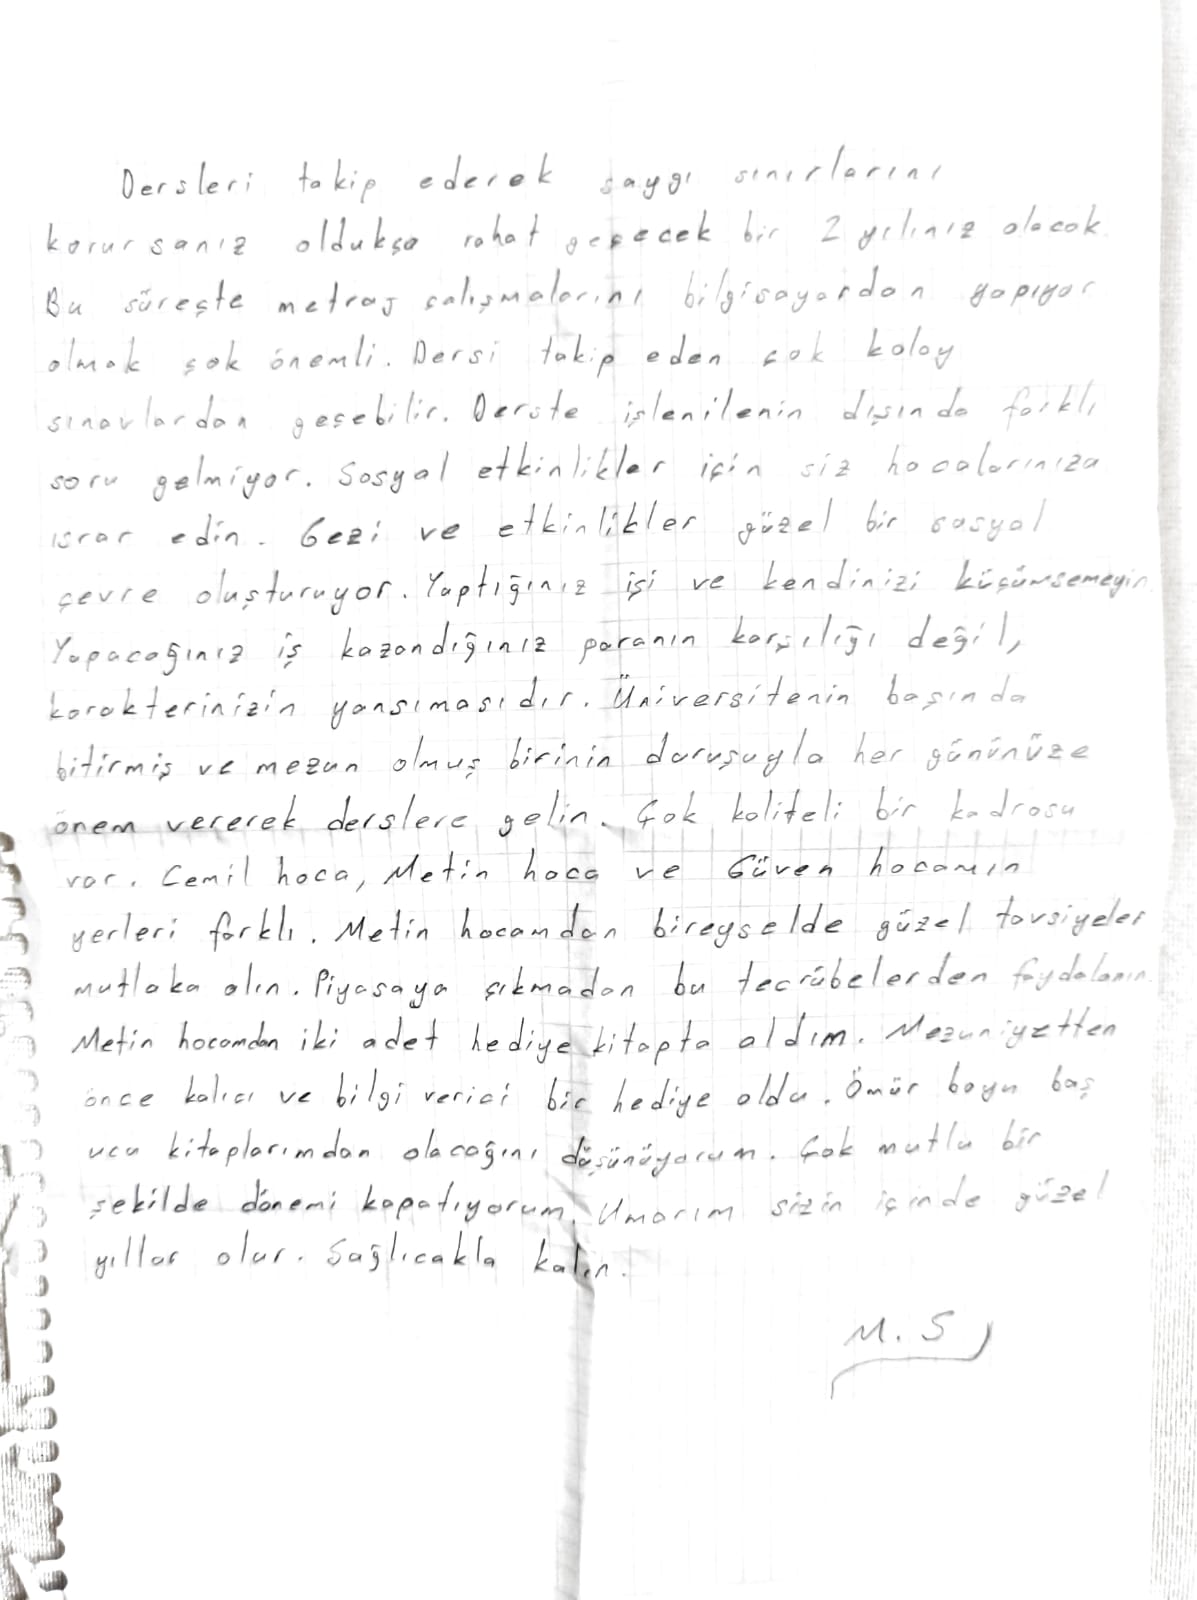 Dersleri takip ederek saygı sınırlarını
korursanız oldukça rahat geçecek bir 2 yılınız olacak.
Bu süreçte metraj çalışmalarını bilgisayardan yapıyor
olmak çok önemli. Dersi takip eden çok kolay
sınavlardan geçebilir. Derste işlenilenin dışında farklı
soru gelmiyor. Sosyal etkinlikler için siz hocalarınıza
ısrar edin. Gezi ve etkinlikler güzel bir sosyal
çevre oluşturuyor. Yaptığınız işi ve kendinizi küçümsemeyin.
Yapacağınız iş kazandığınız paranın karşılığı değil,
karakterinizin yansımasıdır. Üniversitenin başında
bitirmiş ve mezun olmuş birinin duruşuyla her gününüze
önem vererek derslere gelin. Çok kaliteli bir kadrosu
var. Cemil hoca, Metin hoca ve Güven hocamın
yerleri farklı. Metin hocamdan bireyselde güzel tavsiyeler
mutlaka alın. Piyasaya çıkmadan bu tecrübelerden faydalanın.
Metin hocamdan iki adet hediye kitapta aldım. Mezuniyetten
önce kalıcı ve bilgi verici bir hediye oldu. Ömür boyu baş
ucu kitaplarımdan olacağını düşünüyorum. Çok mutlu bir
şekilde dönemi kapatıyorum. Umarım sizin içinde güzel
yıllar olur. Sağlıcakla kalın.
M. S